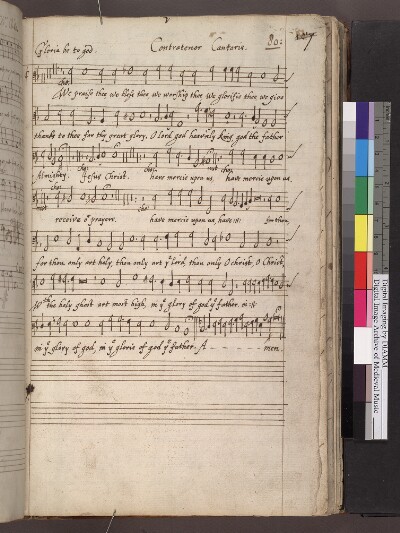 Gloria be to god. Contratenor Cantaris. 80:
We praise thee we bless thee we worship thee we glorifie thee we give
thanks to thee for thy great glory, O lord god heavenly King god the father
Almighty. Jesus Christ. have mercie upon us, have mercie upon us,
receive oʳ prayers. have mercie upon us, have :ii: for thou,
for thou only art holy, thou only art yᵉ Lord, thou only O christ, O Christ,
Wᵗʰ the holy ghost art most high, in yᵉ glory of god yᵉ father. :ii:
in yᵉ glory of god, in yᵉ glorie of god yᵉ father. A - - - - men
Digital Imaging by DIAMM
Digital Image Archive of Medieval Music